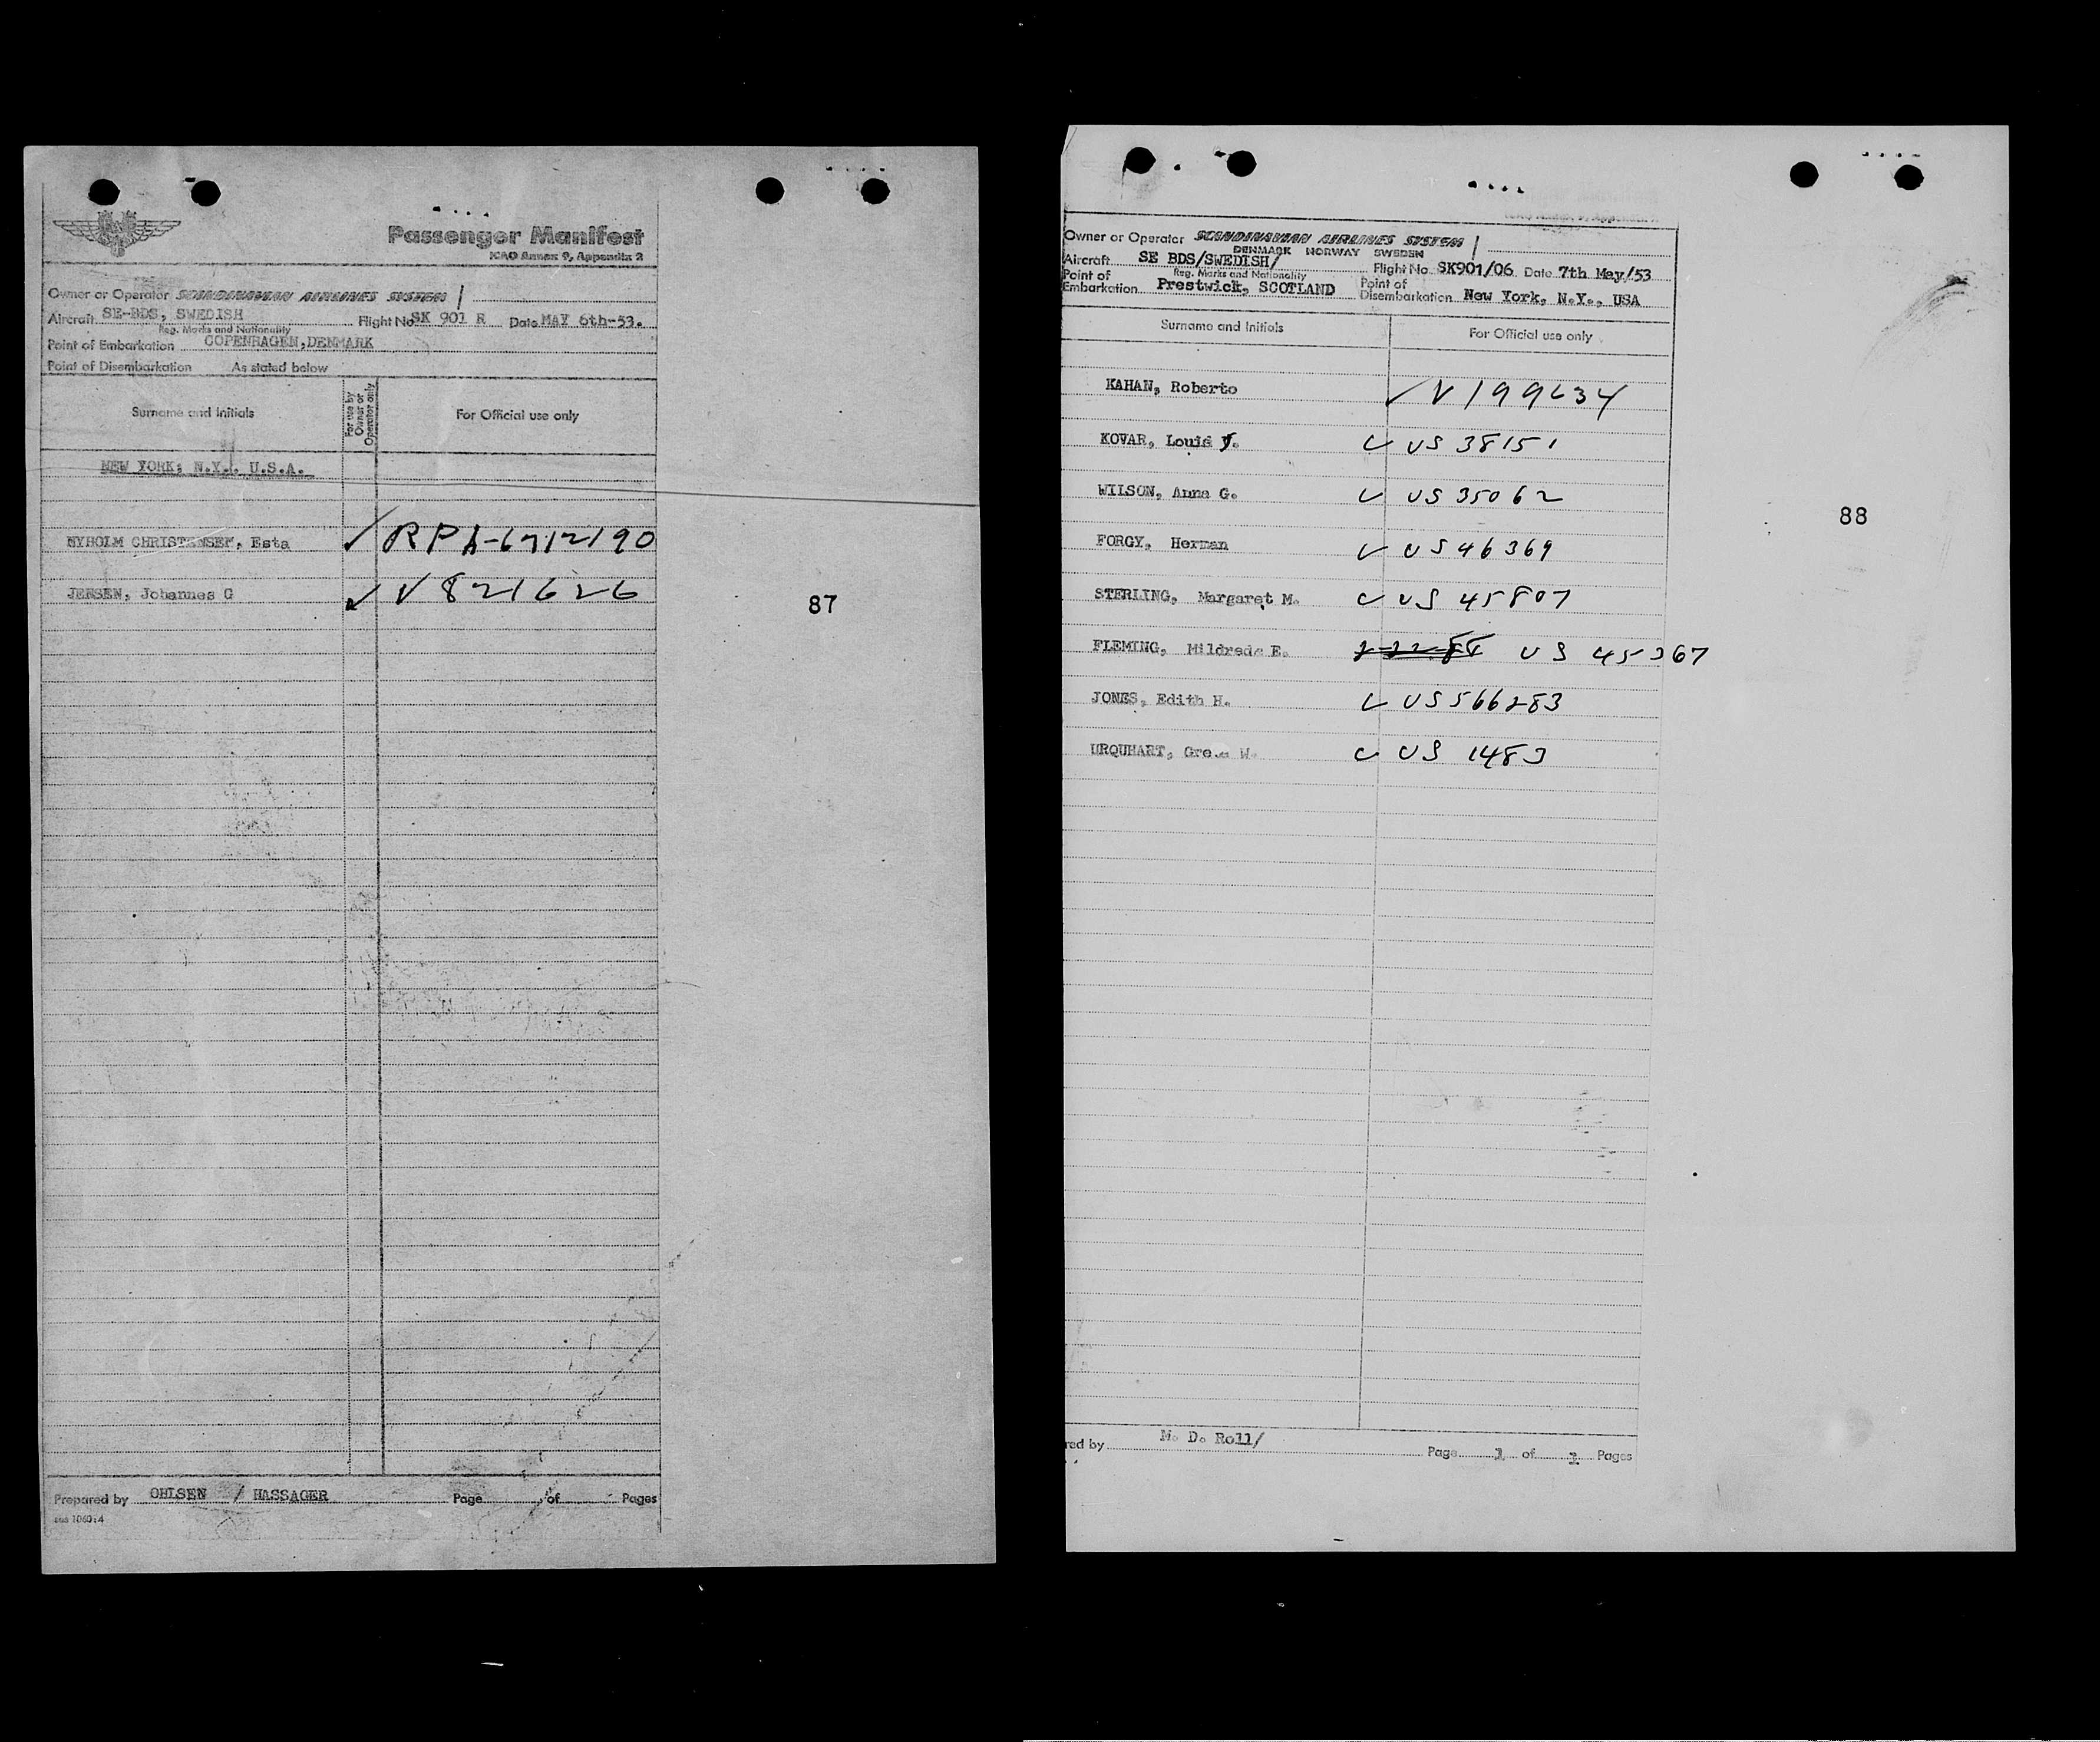 Passenger Manifest
ICAO Annex 9, Appendix 2
Owner or Operator SCANDINAVIAN AIRLINES SYSTEM
Aircraft SE-BDS, SWEDISH Flight No SK 901 R Date MAY 6th-53.
Reg. Marks and Nationality
Point of Embarkation COPENHAGEN, DENMARK
Point of Disembarkation As stated below
Surname and Initials For use by Owner or Operator only For Official use only
NEW YORK, N.Y., U.S.A.
NYHOLM CHRISTENSEN, Esta RPA-6712190
JENSEN, Johannes G V 821626
87
Prepared by OHLSEN / HASSAGER Page of Pages
sas 1060:4
Owner or Operator SCANDINAVIAN AIRLINES SYSTEM
DENMARK NORWAY SWEDEN
Aircraft SE BDS/SWEDISH/ Flight No. SK901/06 Date 7th May/53
Reg. Marks and Nationality
Point of Embarkation Prestwick, SCOTLAND Point of Disembarkation New York, N.Y., USA
Surname and Initials For Official use only
KAHAN, Roberto V 199634
KOVAR, Louis J. US 38151
WILSON, Anna G. US 35062
88
FORGY, Herman US 46369
STERLING, Margaret M. US 45807
FLEMING, Mildrede E. US 45367
JONES, Edith H. US 566283
URQUHART, W. US 1483
red by M. D. Roll/ Page 1 of Pages